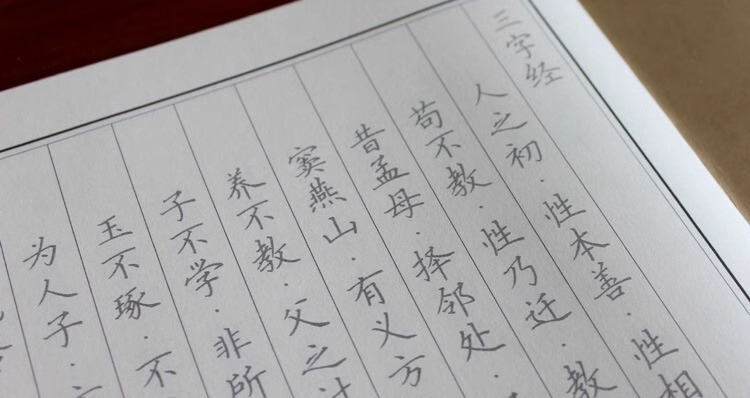 三字经
人之初·性本善·性相
苟不教·性乃迁·教
昔孟母·择邻处·
窦燕山·有义方
养不教·父之
子不学·非所
玉不琢·不
为人子·